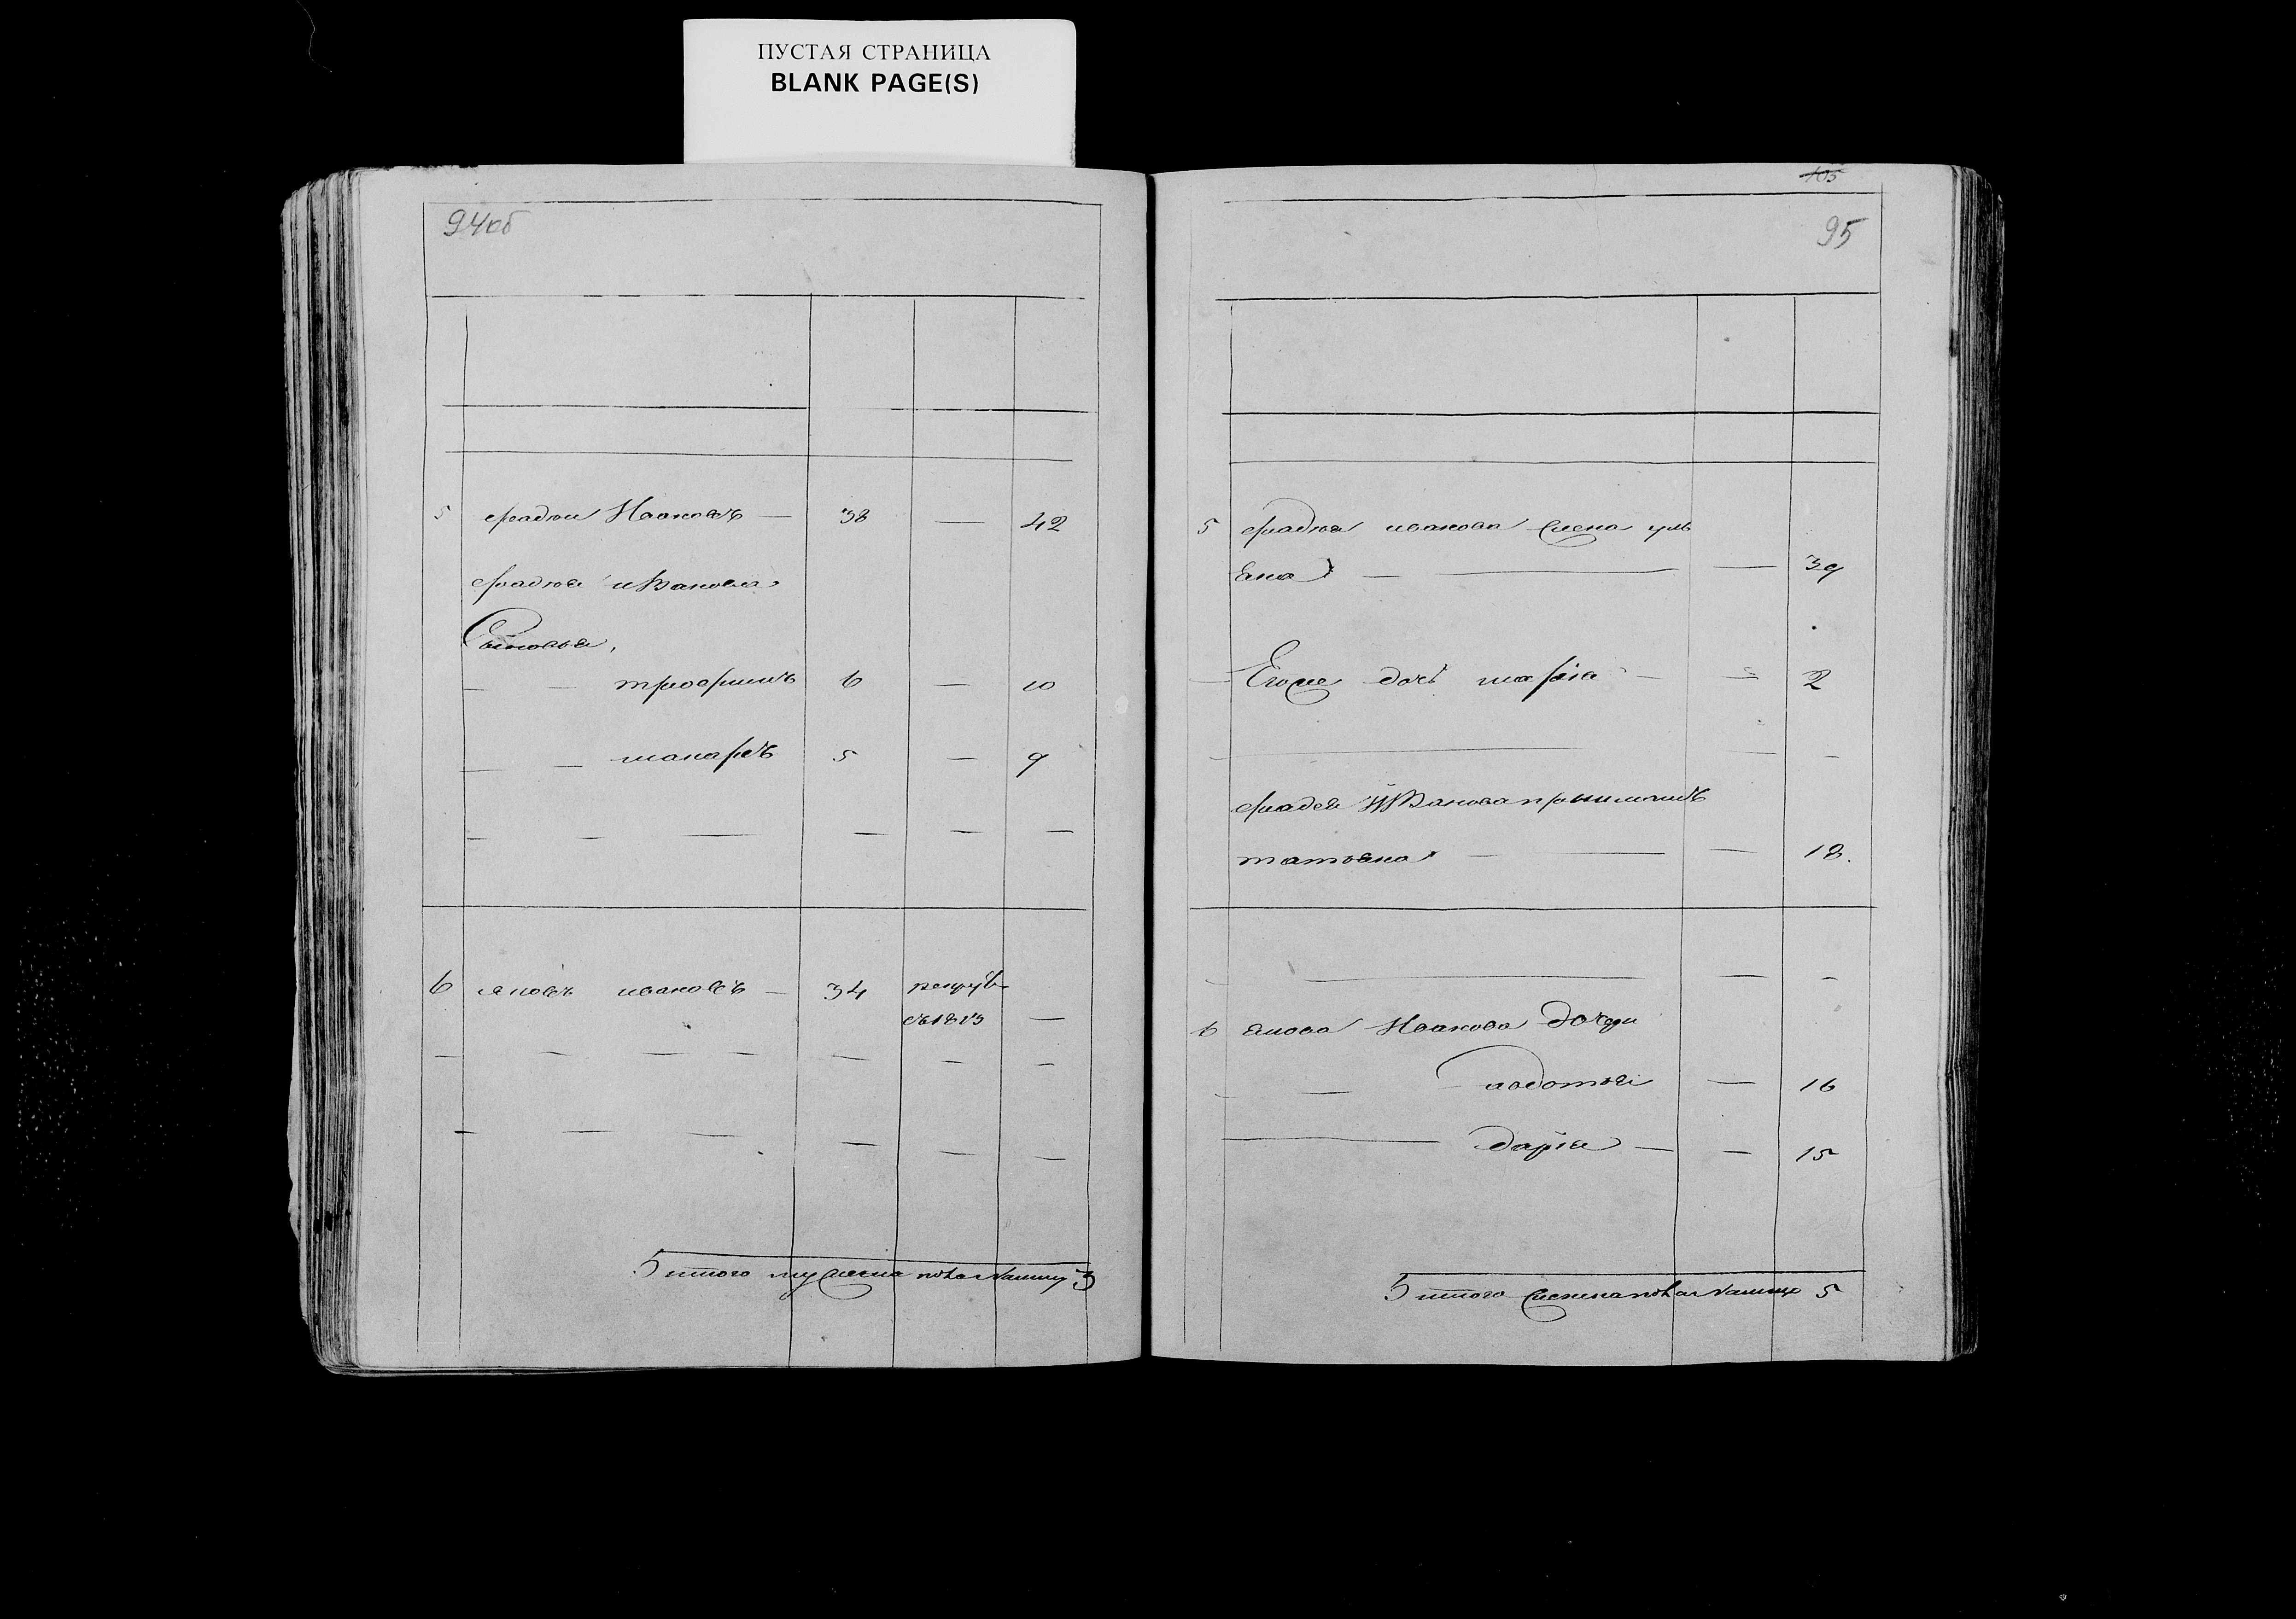 ПУСТАЯ СТРАНИЦА
BLANK PAGE(S)
94об
5 фадеи Ивановъ — 38 — 42
фадея иванова
Сыновья,
трофимъ 6 — 10
макаръ 5 — 9
6 яковъ ивановъ — 34 рекрут
съ 1813 —
итого мужеска налицо 3
105
95
5 фадея иванова жена уль
яна — — 39
Егоже дочь марія — — 2
фадея Иванова
татьяна — — 18.
6 якова Иванова дочери
авдотья — 16
дарья — — 15
итого женска налицо 5